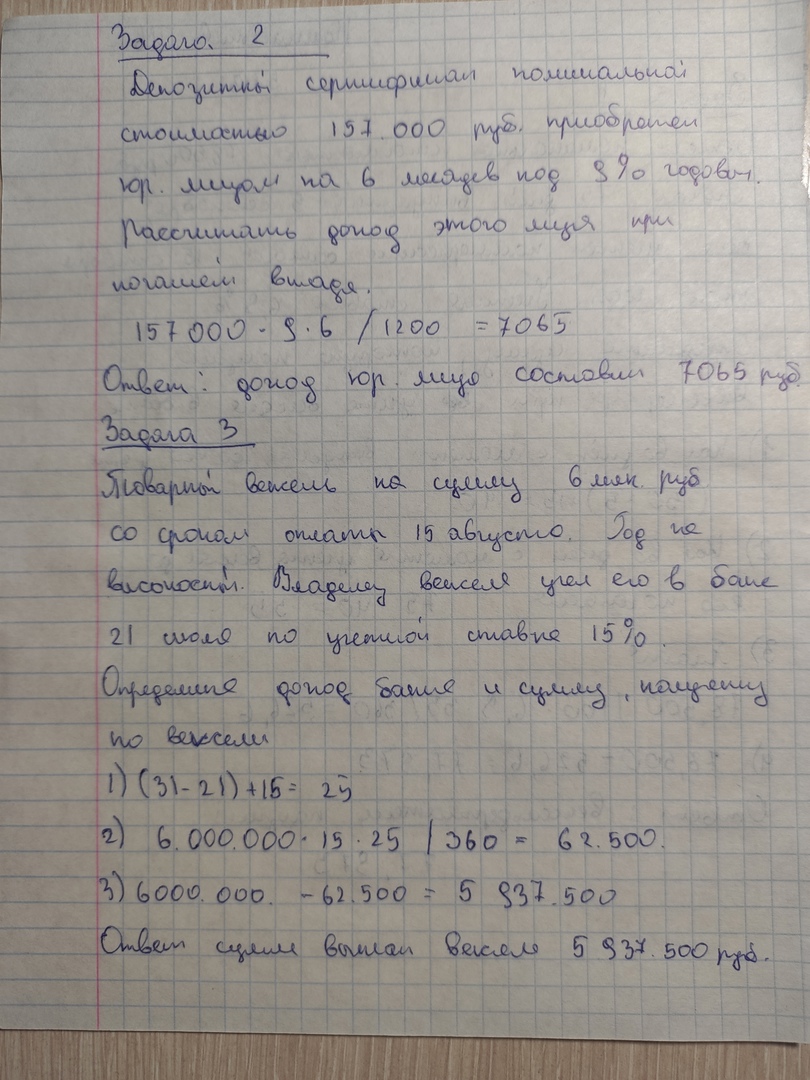 Задача 2
Депозитный сертификат номинальной
стоимостью 157.000 руб. приобретен
юр. лицом на 6 месяцев под 9% годовых.
Рассчитать доход этого лица при
погашен вклада.
157000 · 9 · 6 / 1200 = 7065
Ответ: доход юр. лица составил 7065 руб.
Задача 3
Товарный вексель на сумму 6 млн. руб
со сроком оплаты 15 августа. Год не
високосный. Владелец векселя учел его в банке
21 июля по учетной ставке 15%.
Определите доход банка и сумму,
по векселю
1) (31-21)+15= 25
2) 6.000.000 · 15 · 25 / 360 = 62.500.
3) 6000.000. - 62.500 = 5 937.500
Ответ сумма выплат векселя 5 937.500 руб.